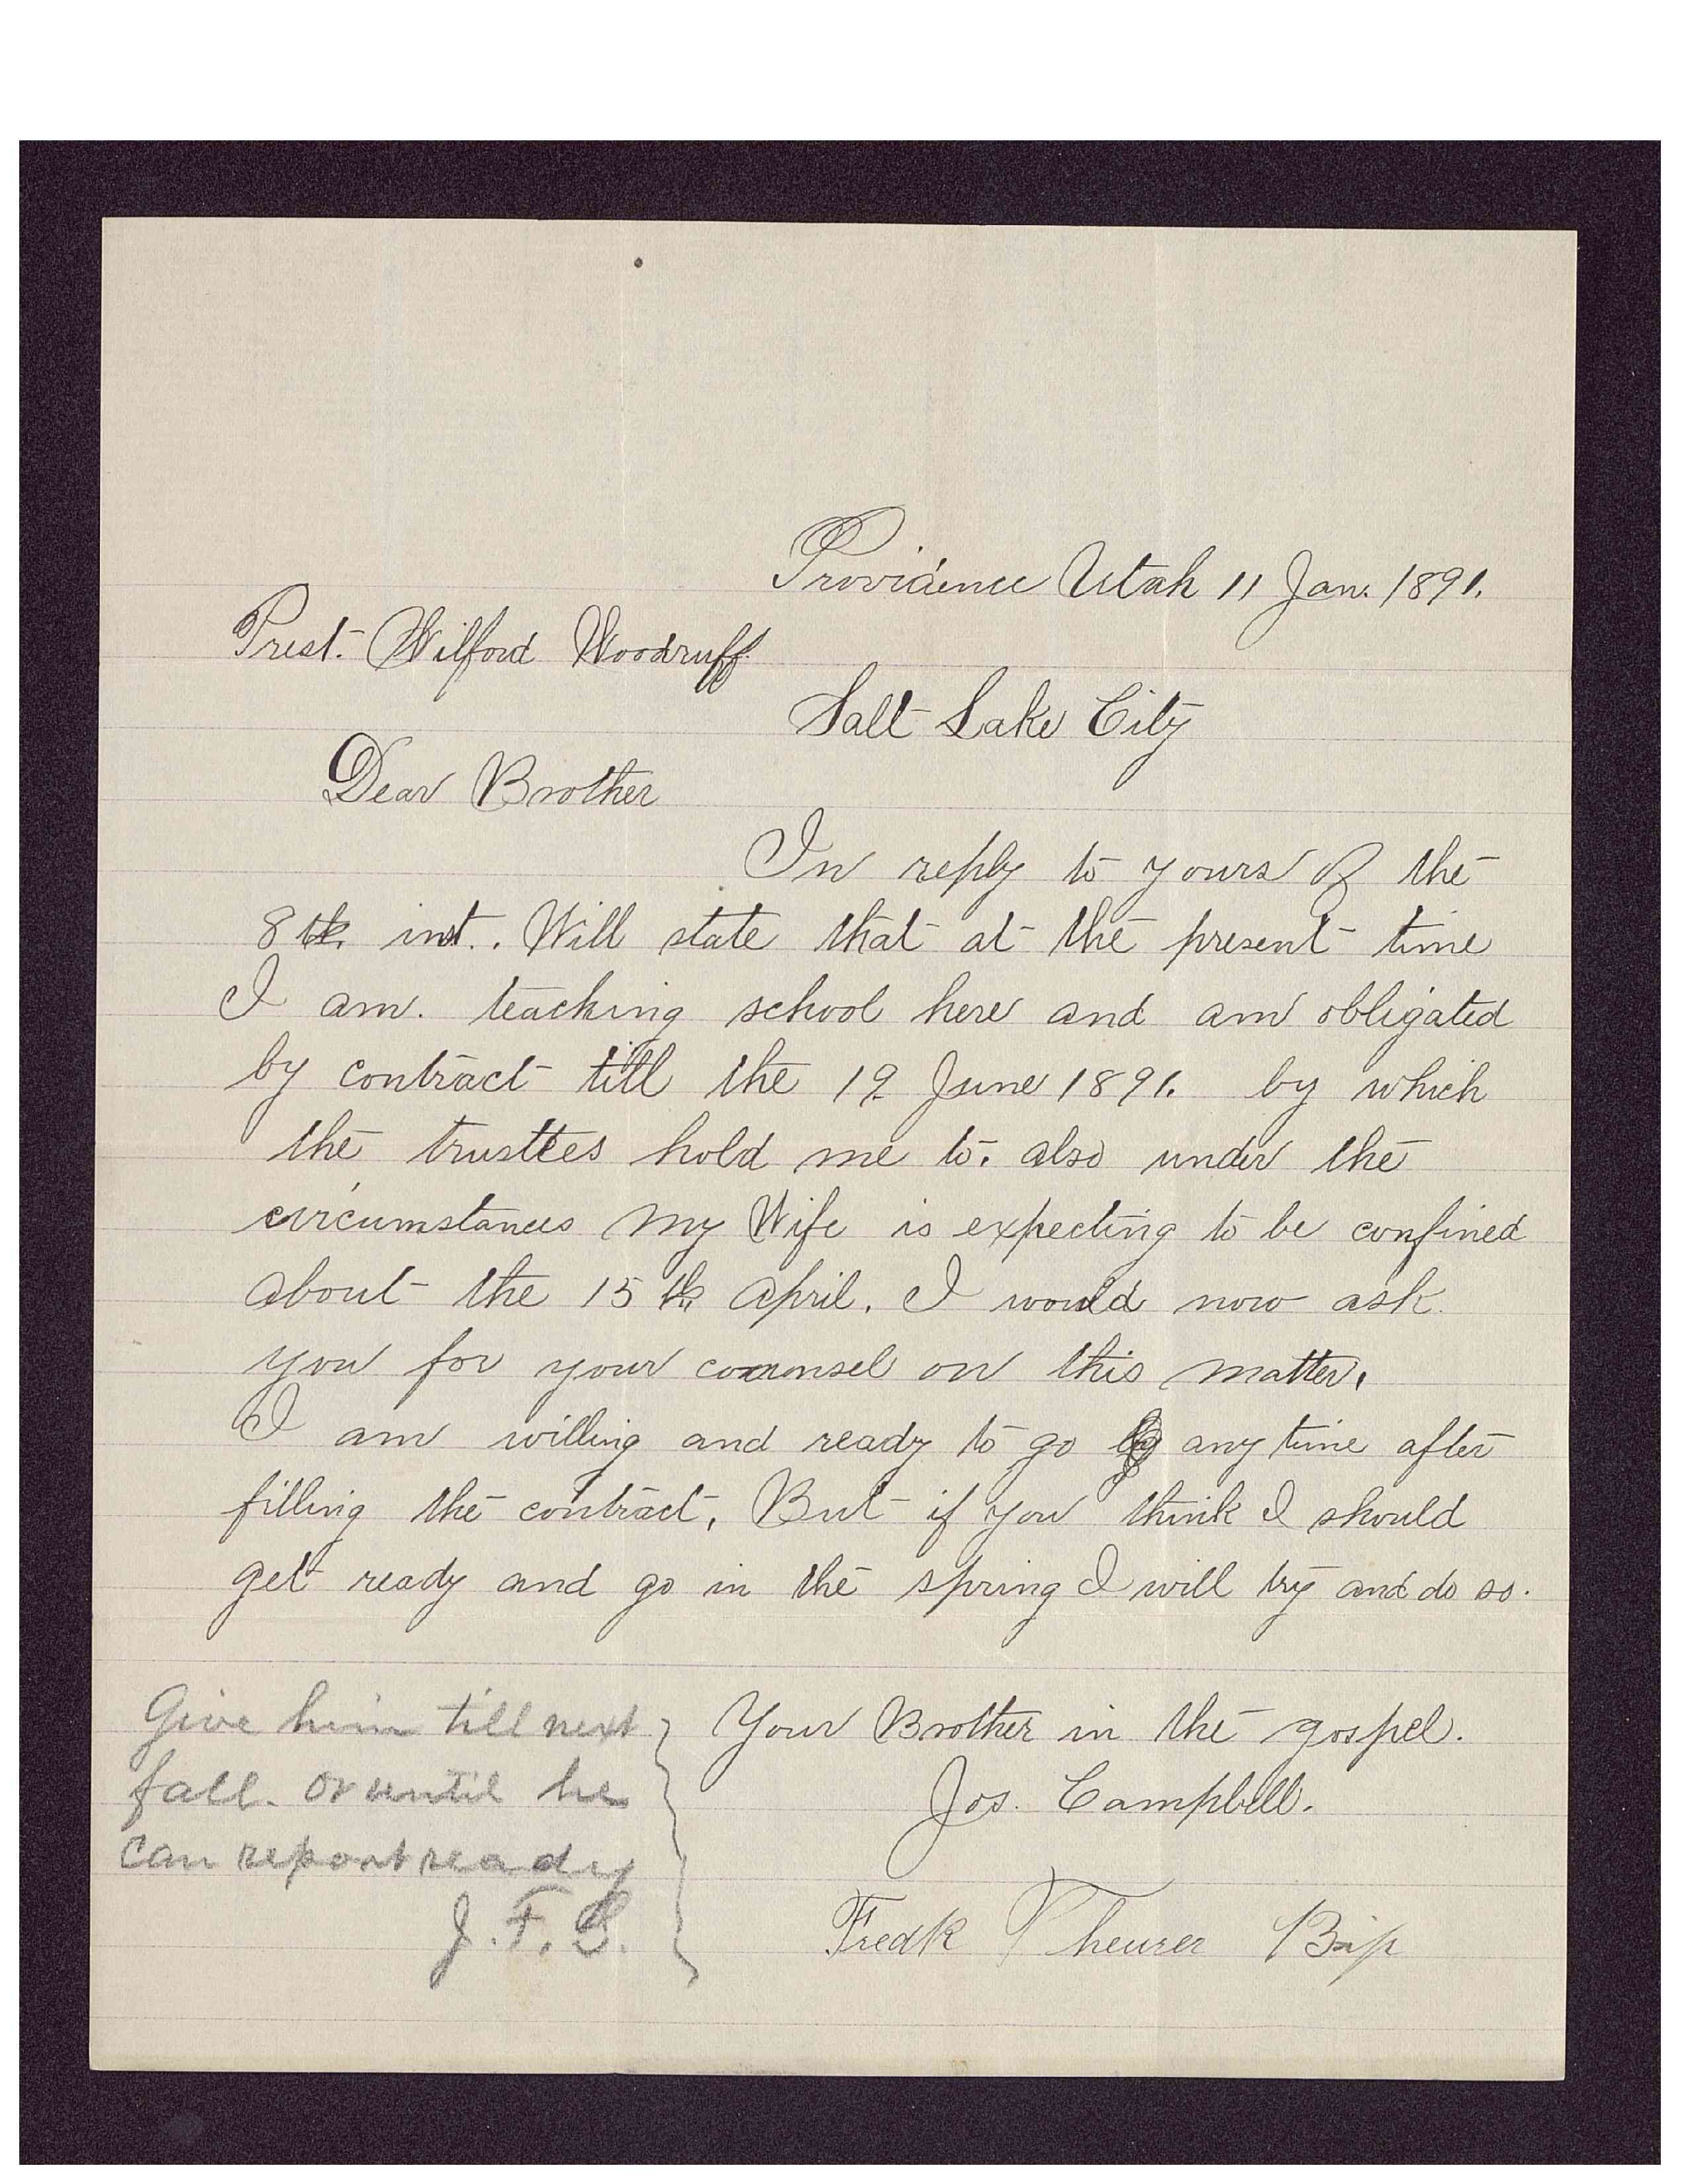 Providence Utah 11 Jan. 1891.
Prest. Wilford Woodruff.
Salt Lake City
Dear Brother
In reply to yours of the
8th. inst.. Will state that at the present time
I am. teaching school here and am obligated
by contract till the 19 June 1891. by which
the trusttes hold me to. also under the
circumstances my Wife is expecting to be confined
about the 15th. April. I would now ask
you for your counsel on this matter.
I am willing and ready to go any time after
filling the contract, But if you think I should
get ready and go in the spring I will try and do so.
Your Brother in the gospel.
Jos. Campbell.
Fredk Theurer Bip
Give him till next
fall. or until he
can report ready
J. F. S.